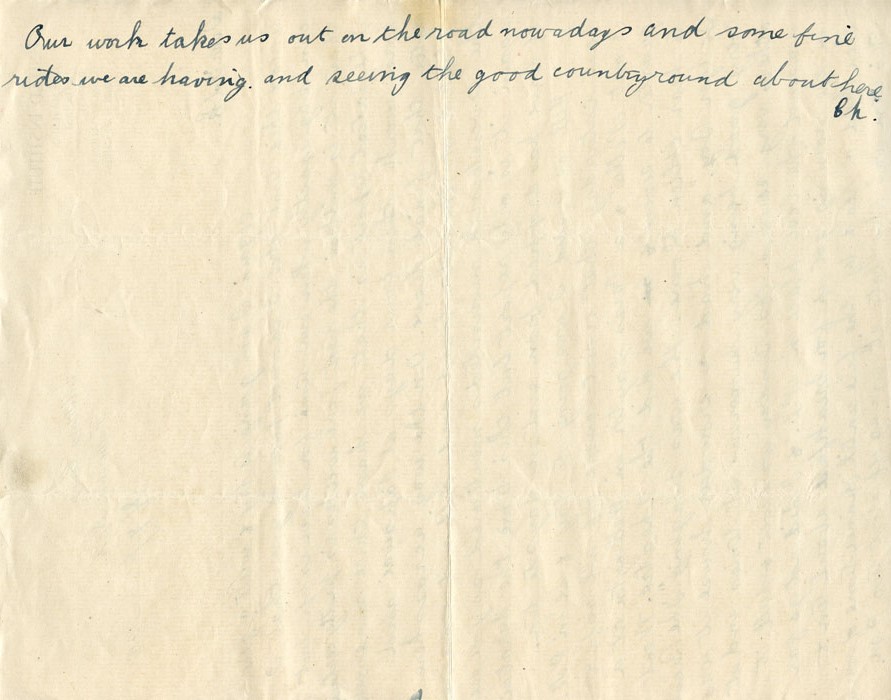 Our work takes us out on the road nowadays and some fine
rides we are having. and seeing the good countryround about here.
Ch.